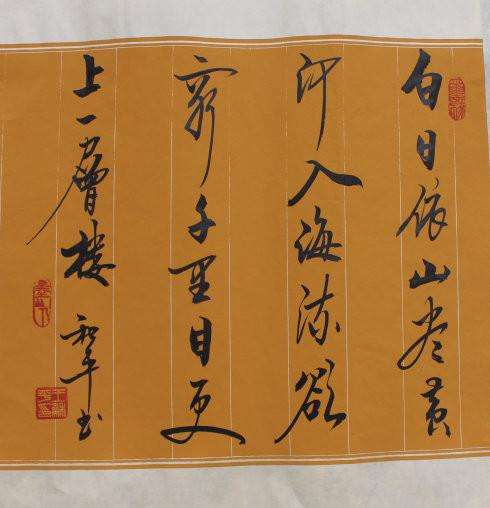 白日依山尽黄
河入海流欲
窮千里目更
上一層楼 和平书